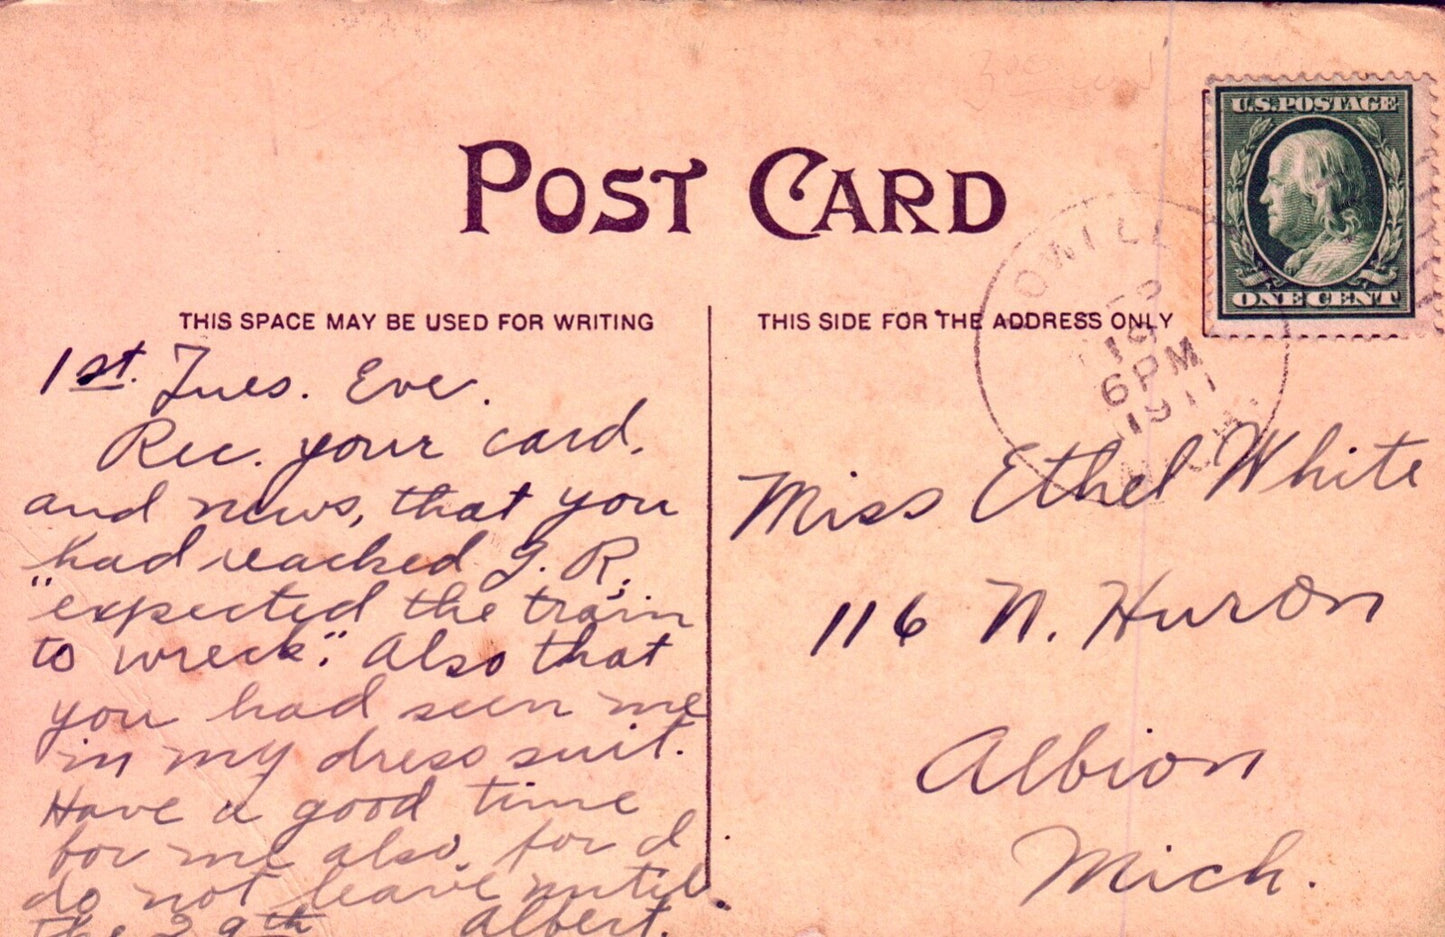 POST CARD
U.S. POSTAGE
ONE CENT
THIS SPACE MAY BE USED FOR WRITING
THIS SIDE FOR THE ADDRESS ONLY
19
6 PM
1911
1st. Tues. Eve.
Rec. your card.
and news, that you
had reached G. R.
"expected the train
to wreck". Also that
you had seen me
in my dress suit.
Have a good time
for me also, for I
do not leave until
the 29th Albert.
Miss Ethel White
116 N. Huron
Albion
Mich.